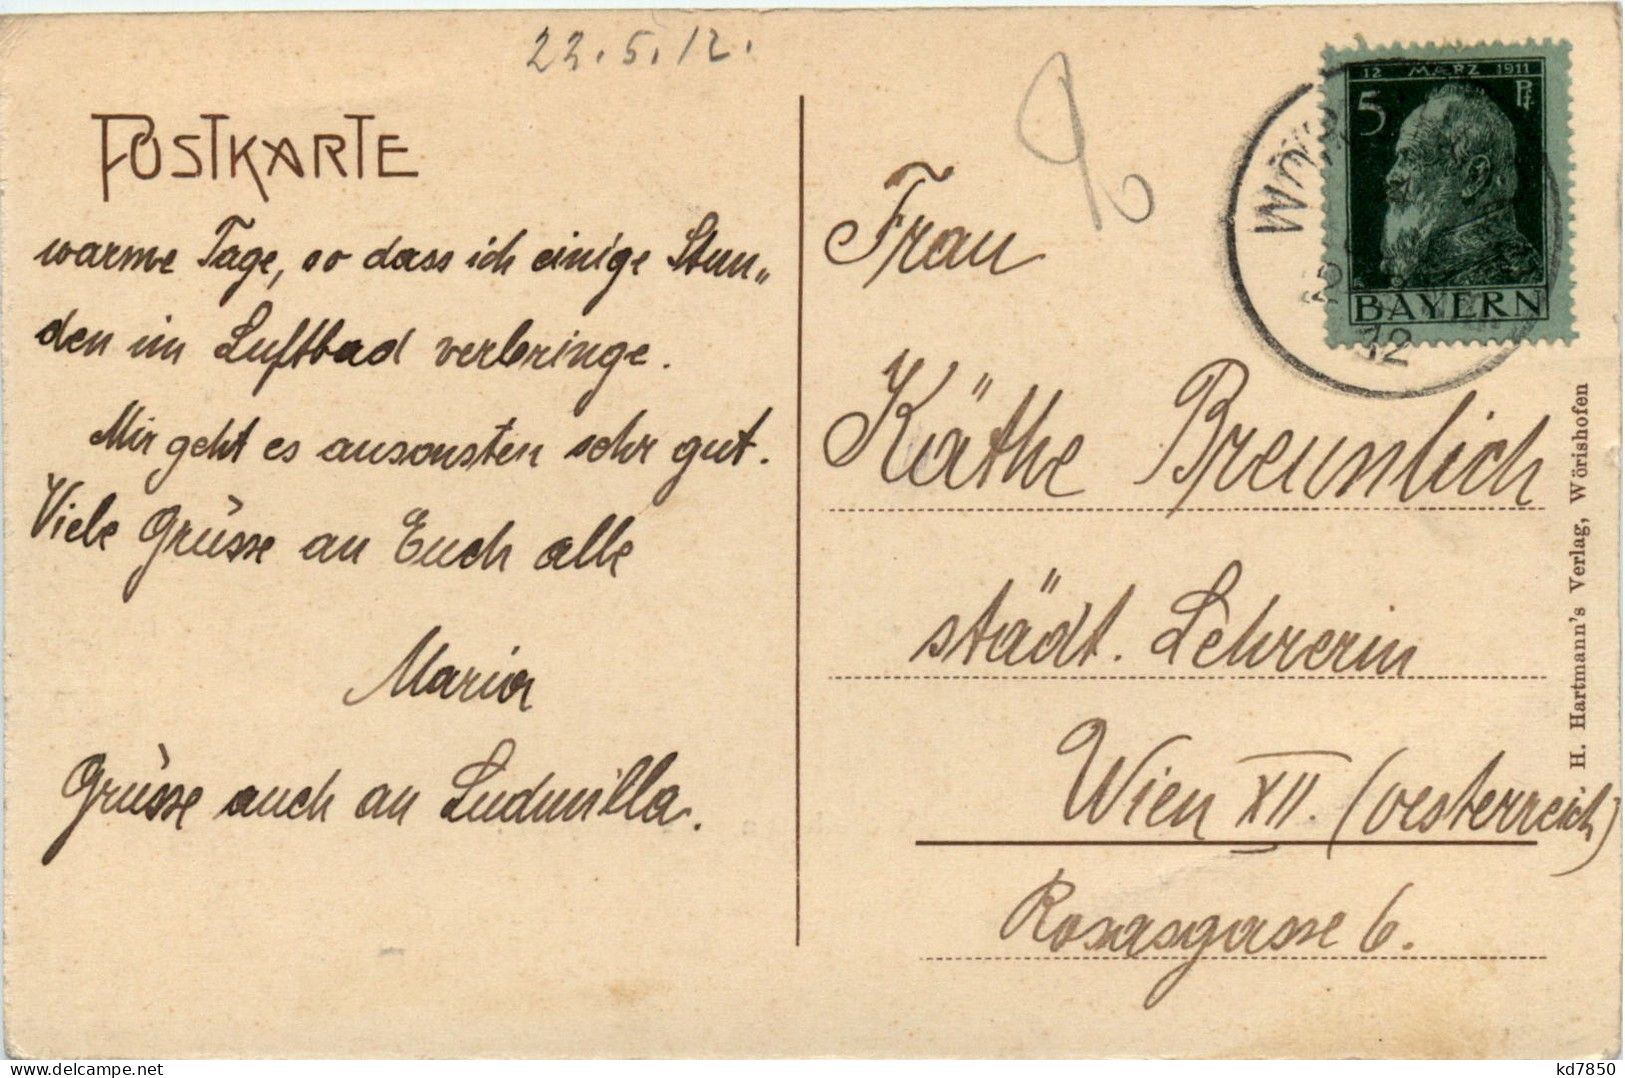 22.5.12.
POSTKARTE
warme Tage, so dass ich einige Stun„
den im Luftbad verbringe.
Mir geht es ansonsten sehr gut.
Viele Grüsse an Euch alle
Maria
Grüsse auch an Ludmilla.
Frau
Käthe Breunlich
städt. Lehrerin
Wien XII. (Oesterreich)
Rosasgasse 6.
12 MÄRZ 1911
5 Pf
BAYERN
12
H. Hartmann's Verlag, Wörishofen
kd7850